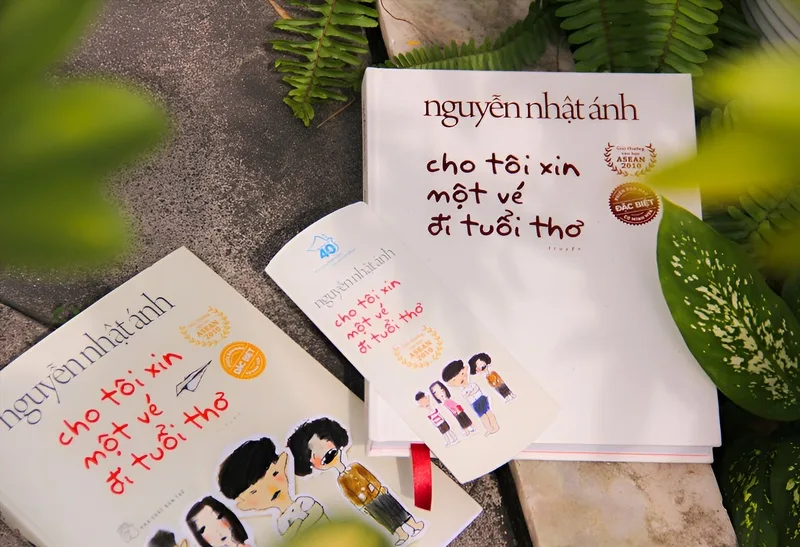 nguyễn nhật ánh
cho tôi xin
một vé
đi tuổi thơ
truyện
Giải thưởng
văn học
ASEAN
2010
ĐẶC BIỆT
40
nguyễn nhật ánh
cho tôi xin
một vé
đi tuổi thơ
ASEAN
2010
nguyễn nhật ánh
cho tôi xin
một vé
đi tuổi thơ
ASEAN
2010
ĐẶC BIỆT
NHÀ XUẤT BẢN TRẺ